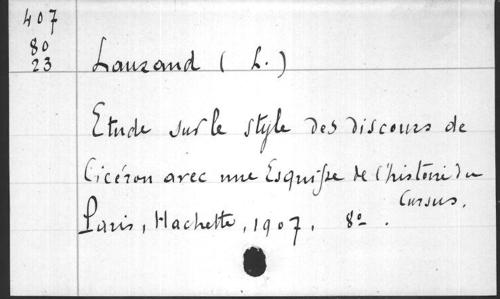 407
80
23
Lauzand (L.)
Etude sur le style des discours de
Cicéron avec une Esquisse de l'histoire du
Cursus.
Paris, Hachette, 1907. 8º.